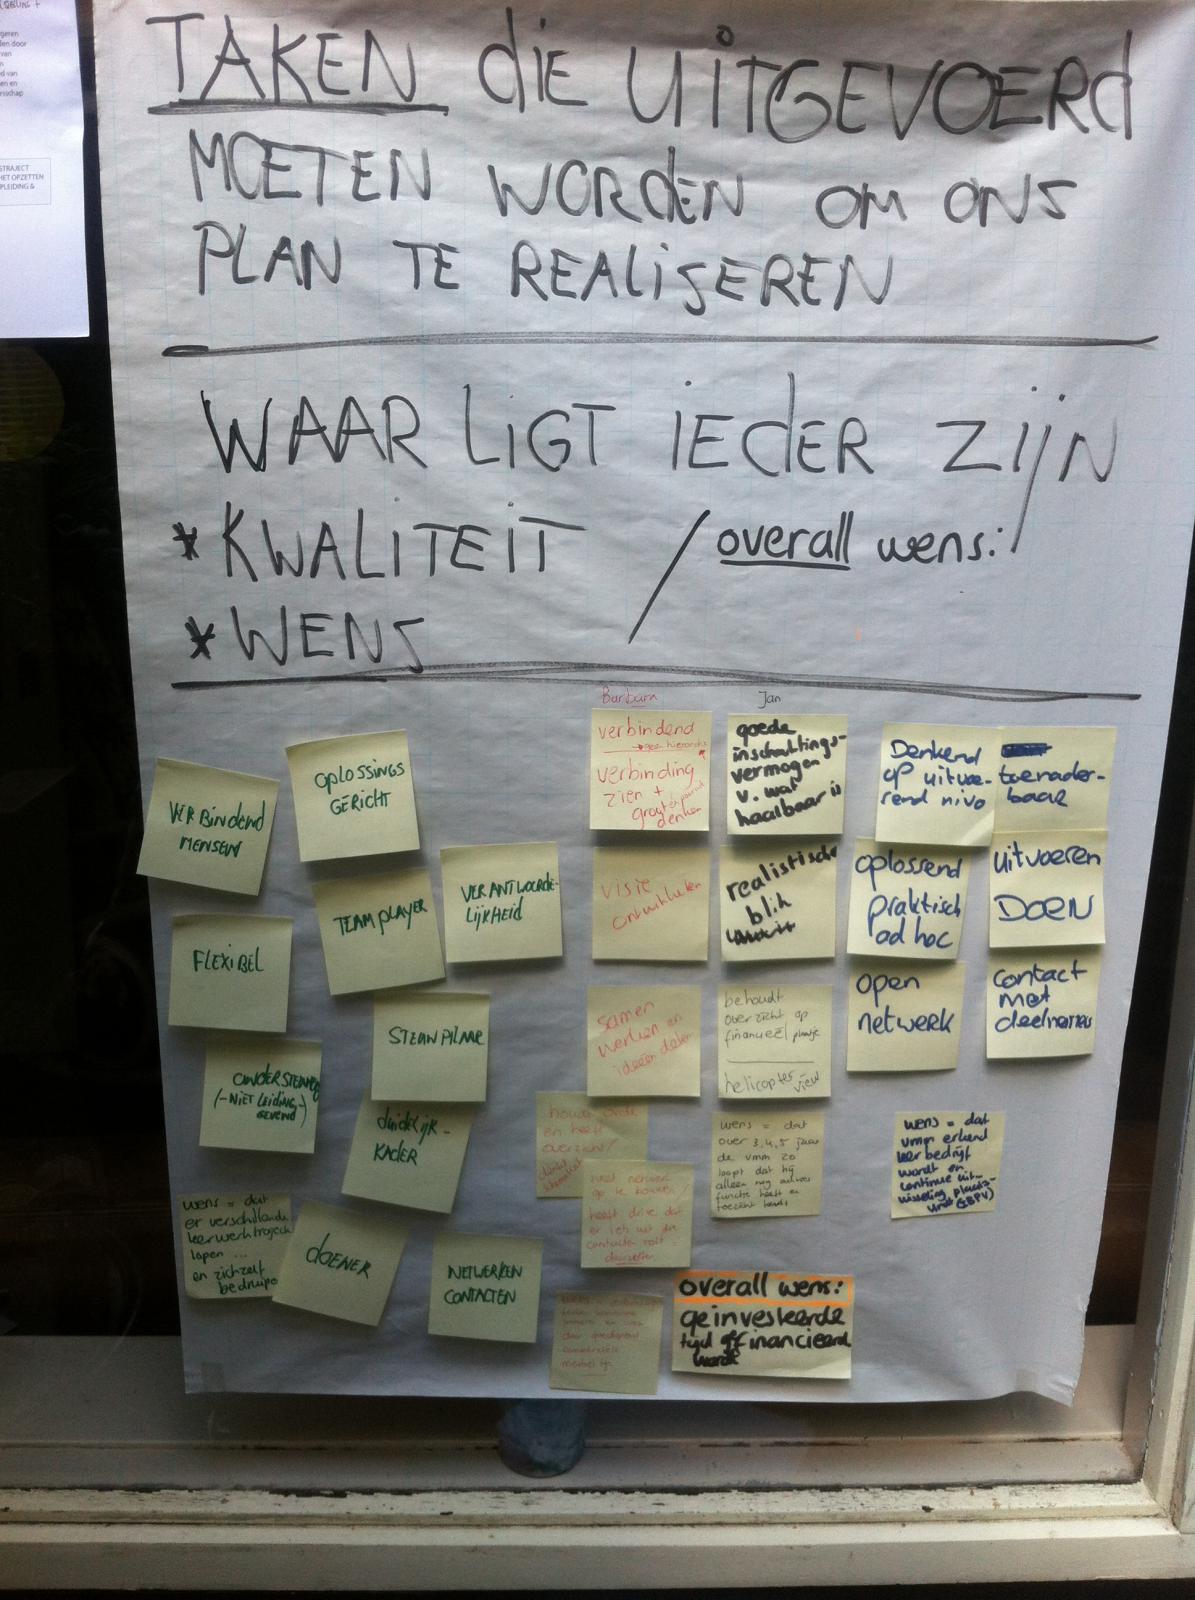 TAKEN die UITGEVOERd
MOETEN WORDEN OM ONS
PLAN TE REALISEREN
WAAR LIGT IEDER ZIJN
* KWALITEIT / overall wens:
* WENS
Barbara
Jan
VERBINDEND
MENSEN
OPLOSSINGS
GERICHT
TEAMPLAYER
VERANTWOORDE-
LIJKHEID
FLEXIBEL
STEUNPILAAR
ONDERSTEUNEND
(-NIET LEIDING-)
GEVEND
duidelijk-
KADER
wens = dat
er verschillende
leerwerktrajecten
lopen ...
en zichzelf
bedruipe
DOENER
NETWERKEN
CONTACTEN
verbindend
→ geen hierarchi
verbinding
zien +
groot
denken
visie
ontwikkelen
samen
werken en
ideeën delen
houdt orde
en heeft
overzicht/
met netwerk
op te bouwen/
heeft drive dat
er iets uit de
contacten rolt =
goede
inschattings-
vermogen
v. wat
haalbaar is
realistische
blik
behoudt
overzicht op
financieel plaatje
helicopter view
wens = dat
over 3, 4, 5 jaar
de vmm zo
loopt dat hij
alleen nog
functie heeft en
Denkend
op uitvoe-
rend nivo
toenader-
baar
oplossend
praktisch
ad hoc
uitvoeren
DOEN
open
netwerk
contact
met
deelnemers
wens = dat
vmm erkend
leerbedrijf
wordt en
continue uit-
wisseling plaats-
vindt (BPV)
overall wens:
geinvesteerde
tijd gefinancieerd
wordt